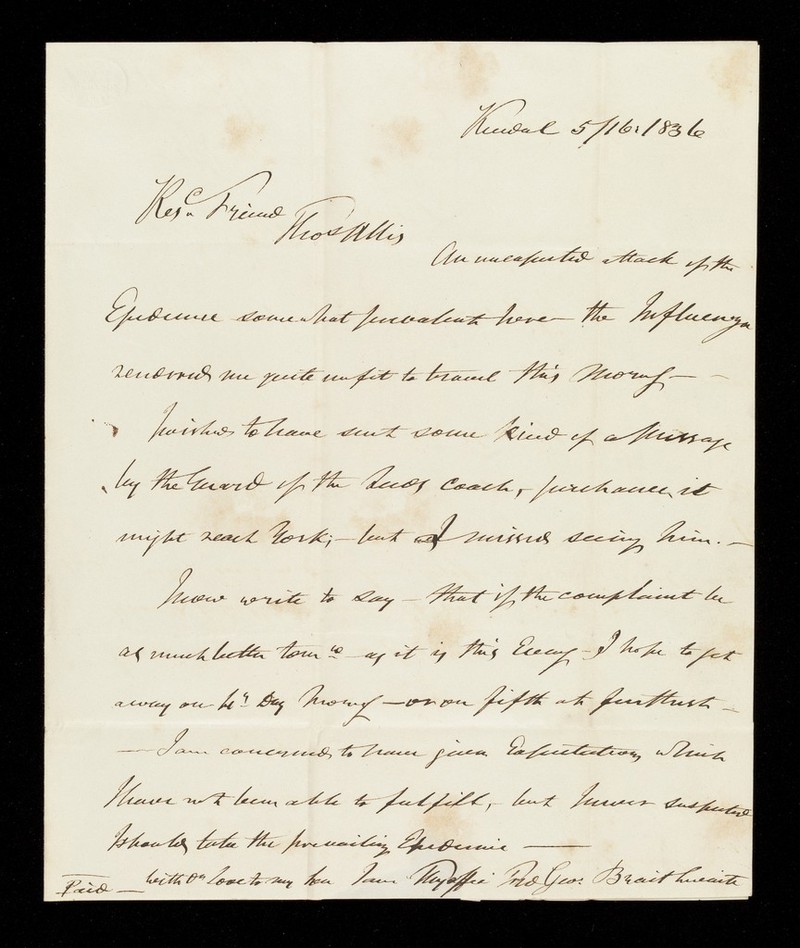 Kendal 5/16. 1836
Resd. Friend
Thos Allis
An unexpected attack of the
Epidemic somewhat prevalent here – the Influenza
rendered me quite unfit to travel this Morng —
I wished to have sent some kind of a Message
by the Guard of the Leeds Coach, perchance it
might reach York; – but I missed seeing him. –
I now write to say – that if the complaint be
as much better tomw – as it is this Eveng – I hope to get
away on 4th Day Morng – or on fifth at furthest –
— I am concerned to have given Expectations which
I have not been able to fulfill, – but I never suspected
I should take the prevailing Epidemic —
Paid — with dr love to my Son I am Thy affte Frd Geo: Braithwaite